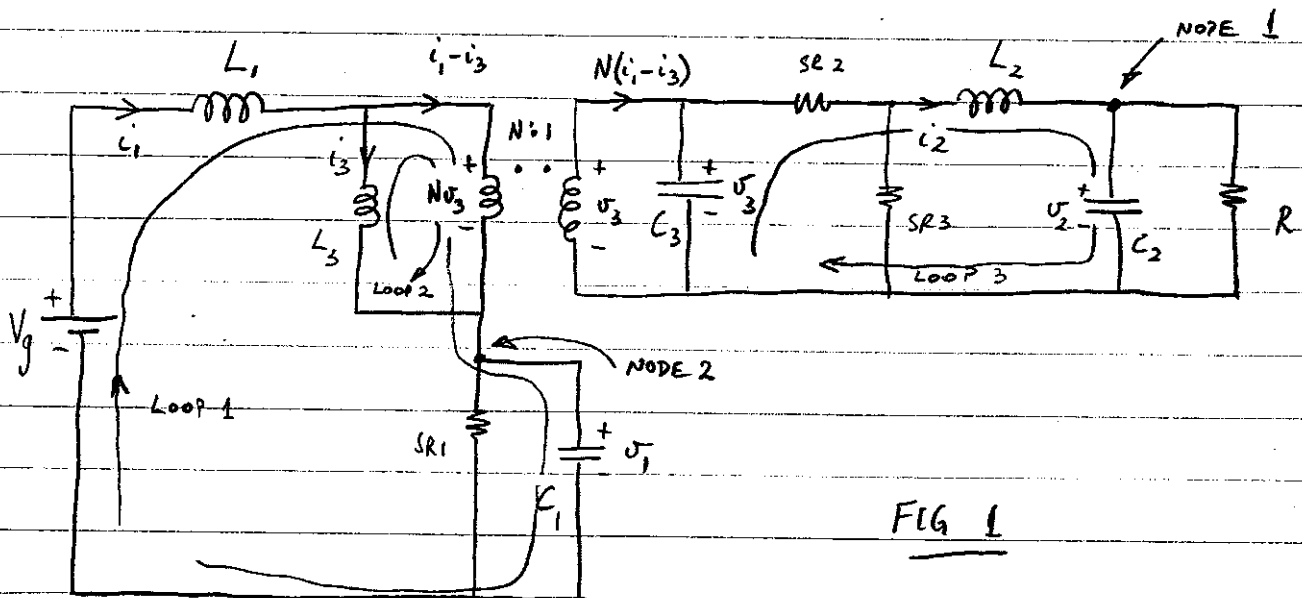 NODE 1
L₁
i₁-i₃
N(i₁-i₃)
SR 2
L₂
i₁
i₃
N:1
i₂
+
Nv₃
-
+
v₃
-
+
v₃
-
C₃
SR3
+
v₂
-
C₂
R
L₃
LOOP 2
LOOP 3
+
Vg
-
NODE 2
LOOP 1
SR1
+
v₁
C₁
FIG 1